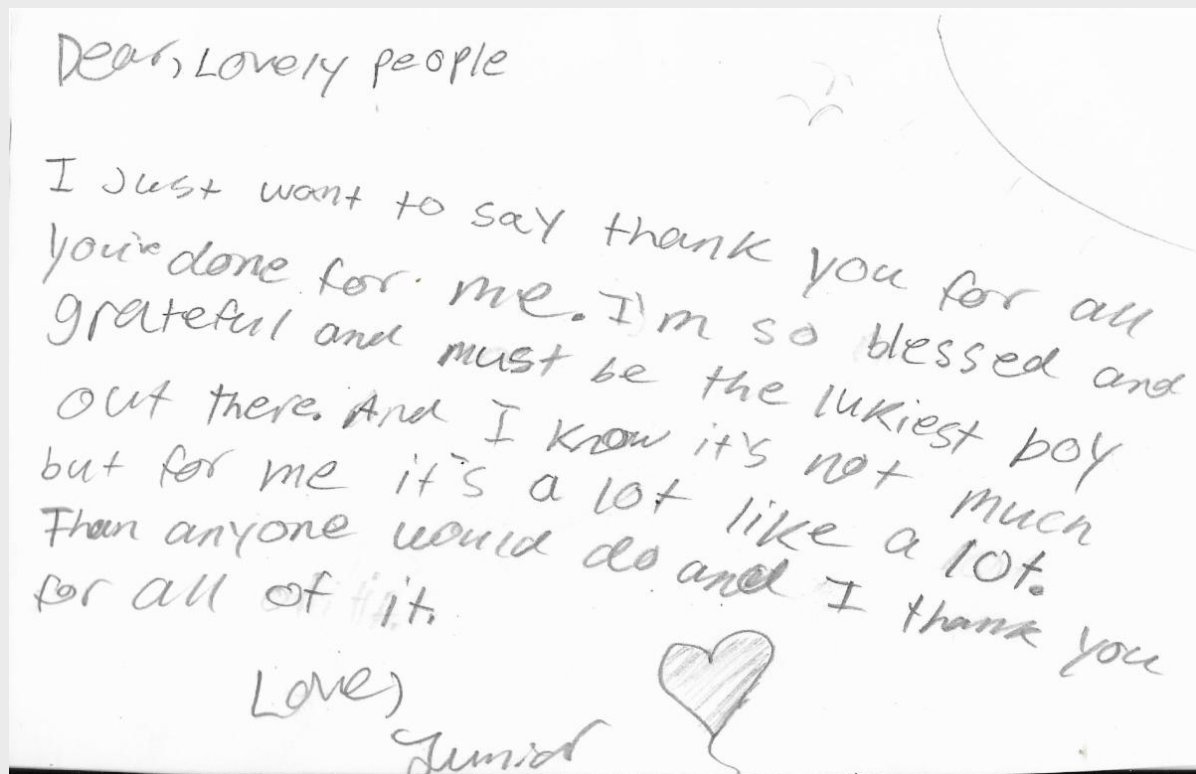 Dear, Lovely people
I Just want to say thank you for all
you've done for me. I'm so blessed and
grateful and must be the lukiest boy
out there. And I know it's not much
but for me it's a lot like a lot.
Than anyone would do and I thank you
for all of it.
Love,
Junior